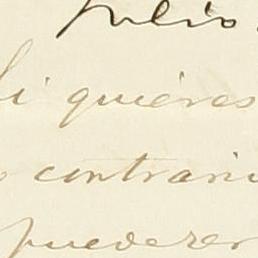 Julio
si quieres
contrari
puederer